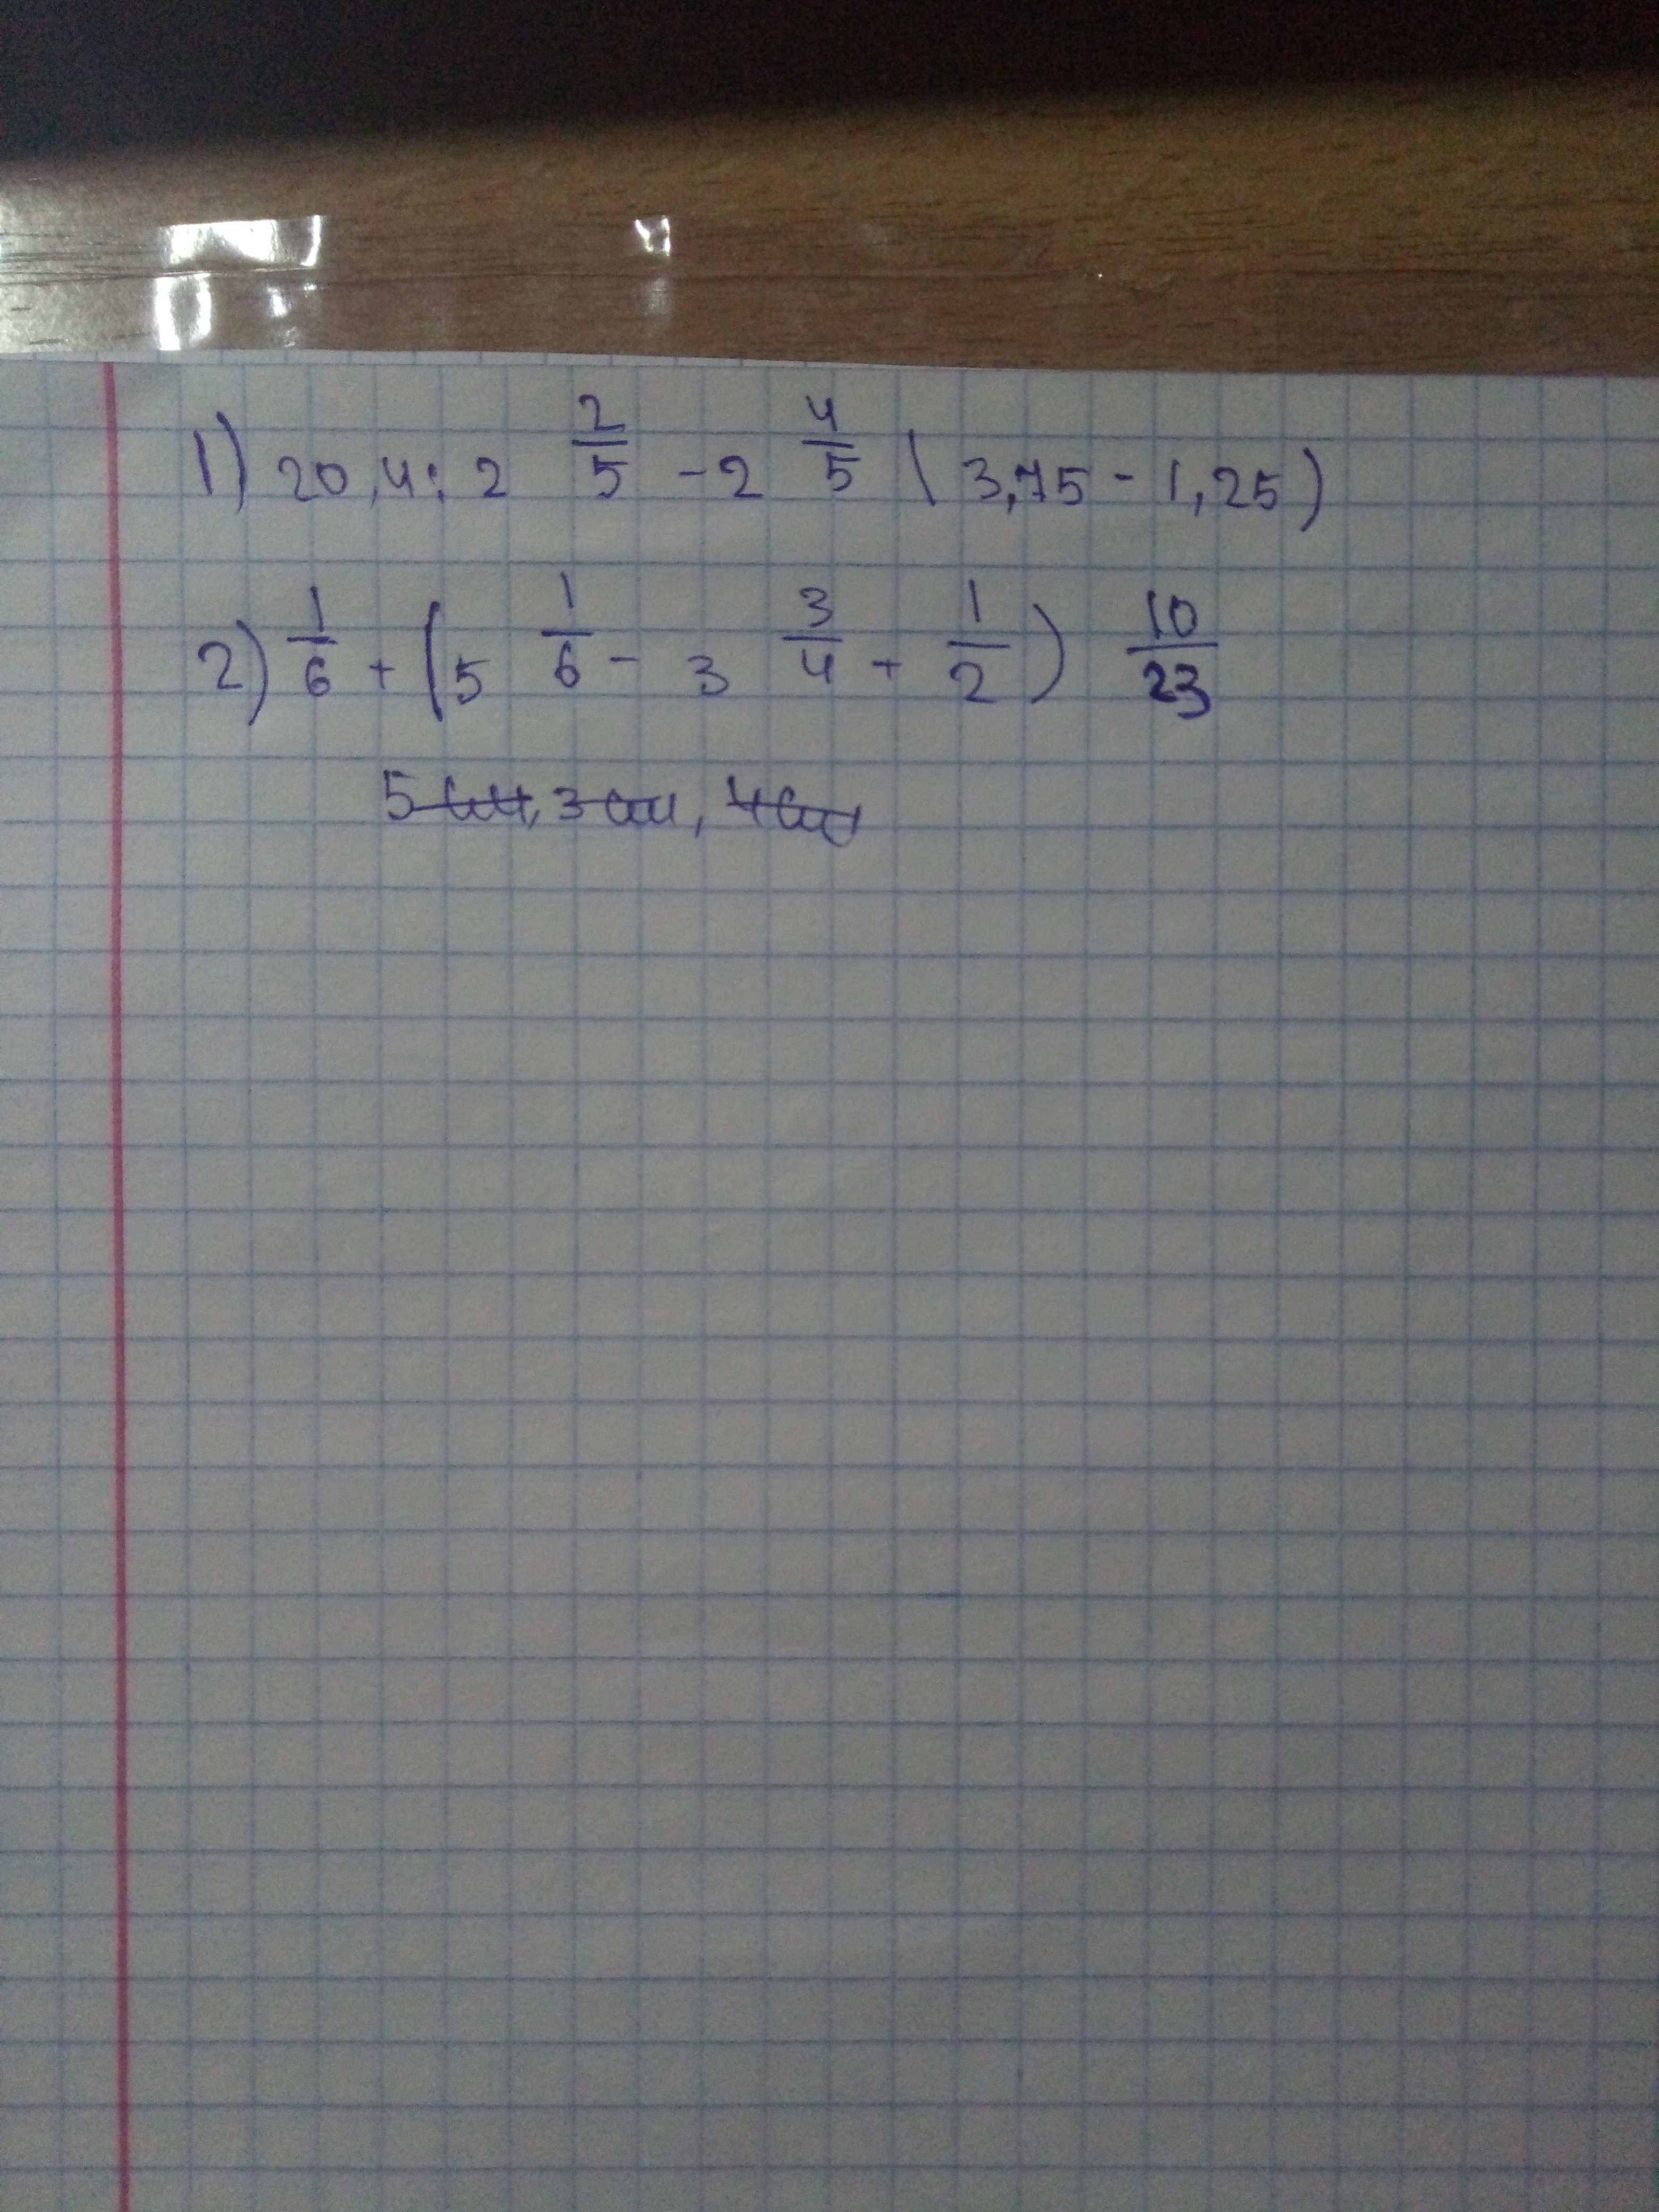 1) 20,4 : 2 2/5 - 2 4/5 ( 3,75 - 1,25 )
2) 1/6 + ( 5 1/6 - 3 3/4 + 1/2 ) 10/23
5 см, 3 см, 4 см